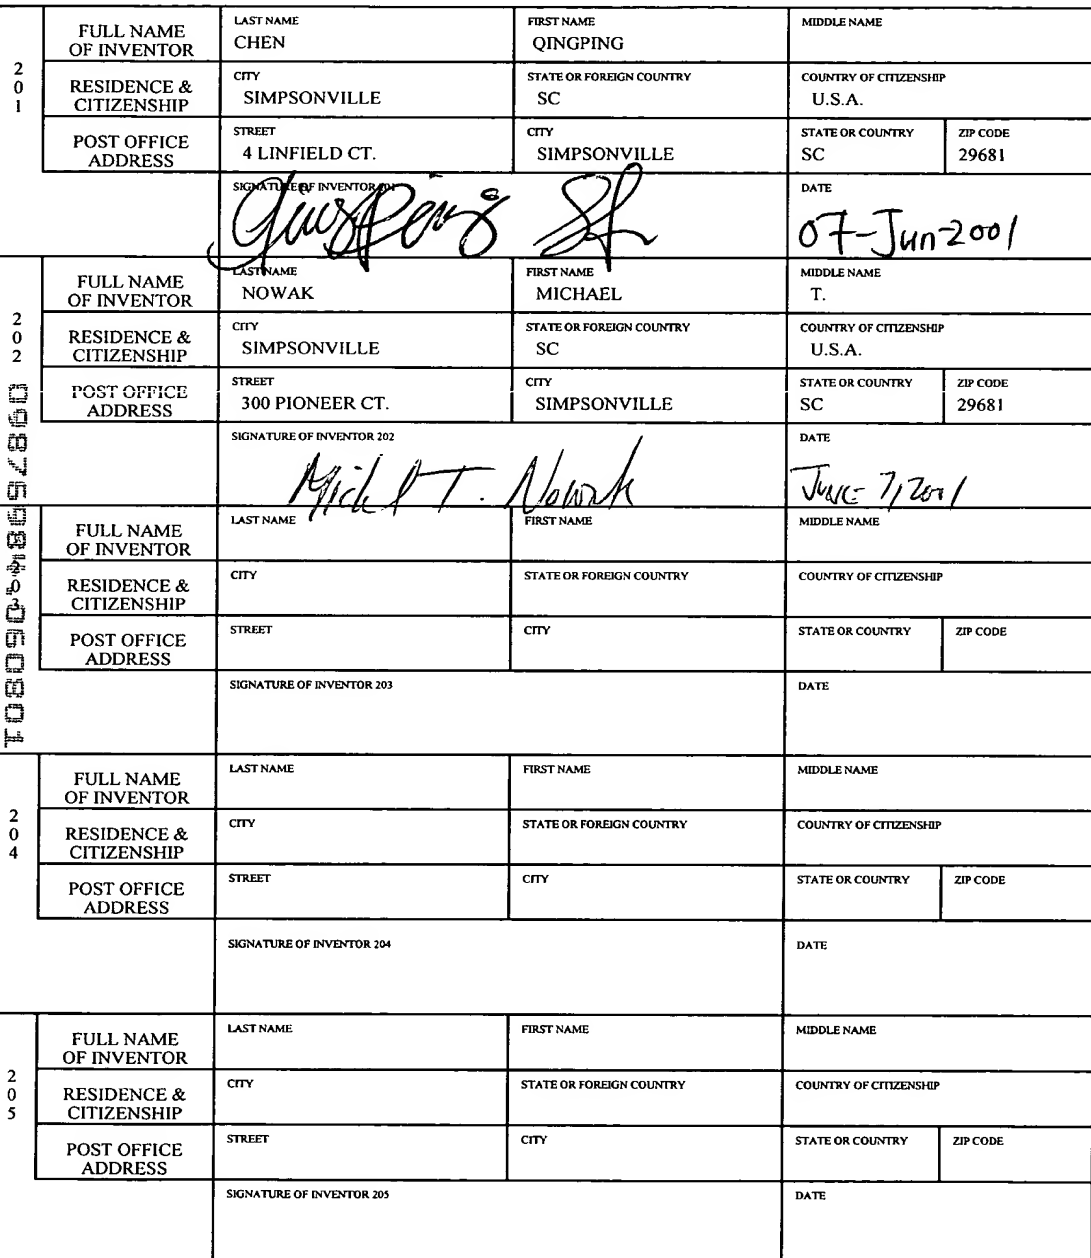 201
FULL NAME OF INVENTOR
LAST NAME CHEN
FIRST NAME QINGPING
MIDDLE NAME
RESIDENCE & CITIZENSHIP
CITY SIMPSONVILLE
STATE OR FOREIGN COUNTRY SC
COUNTRY OF CITIZENSHIP U.S.A.
POST OFFICE ADDRESS
STREET 4 LINFIELD CT.
CITY SIMPSONVILLE
STATE OR COUNTRY SC
ZIP CODE 29681
SIGNATURE OF INVENTOR 201
DATE 07-Jun-2001
202
FULL NAME OF INVENTOR
LAST NAME NOWAK
FIRST NAME MICHAEL
MIDDLE NAME T.
RESIDENCE & CITIZENSHIP
CITY SIMPSONVILLE
STATE OR FOREIGN COUNTRY SC
COUNTRY OF CITIZENSHIP U.S.A.
POST OFFICE ADDRESS
STREET 300 PIONEER CT.
CITY SIMPSONVILLE
STATE OR COUNTRY SC
ZIP CODE 29681
SIGNATURE OF INVENTOR 202 Michael T. Nowak
DATE JUNE 7, 2001
203
FULL NAME OF INVENTOR
LAST NAME
FIRST NAME
MIDDLE NAME
RESIDENCE & CITIZENSHIP
CITY
STATE OR FOREIGN COUNTRY
COUNTRY OF CITIZENSHIP
POST OFFICE ADDRESS
STREET
CITY
STATE OR COUNTRY
ZIP CODE
SIGNATURE OF INVENTOR 203
DATE
204
FULL NAME OF INVENTOR
LAST NAME
FIRST NAME
MIDDLE NAME
RESIDENCE & CITIZENSHIP
CITY
STATE OR FOREIGN COUNTRY
COUNTRY OF CITIZENSHIP
POST OFFICE ADDRESS
STREET
CITY
STATE OR COUNTRY
ZIP CODE
SIGNATURE OF INVENTOR 204
DATE
205
FULL NAME OF INVENTOR
LAST NAME
FIRST NAME
MIDDLE NAME
RESIDENCE & CITIZENSHIP
CITY
STATE OR FOREIGN COUNTRY
COUNTRY OF CITIZENSHIP
POST OFFICE ADDRESS
STREET
CITY
STATE OR COUNTRY
ZIP CODE
SIGNATURE OF INVENTOR 205
DATE